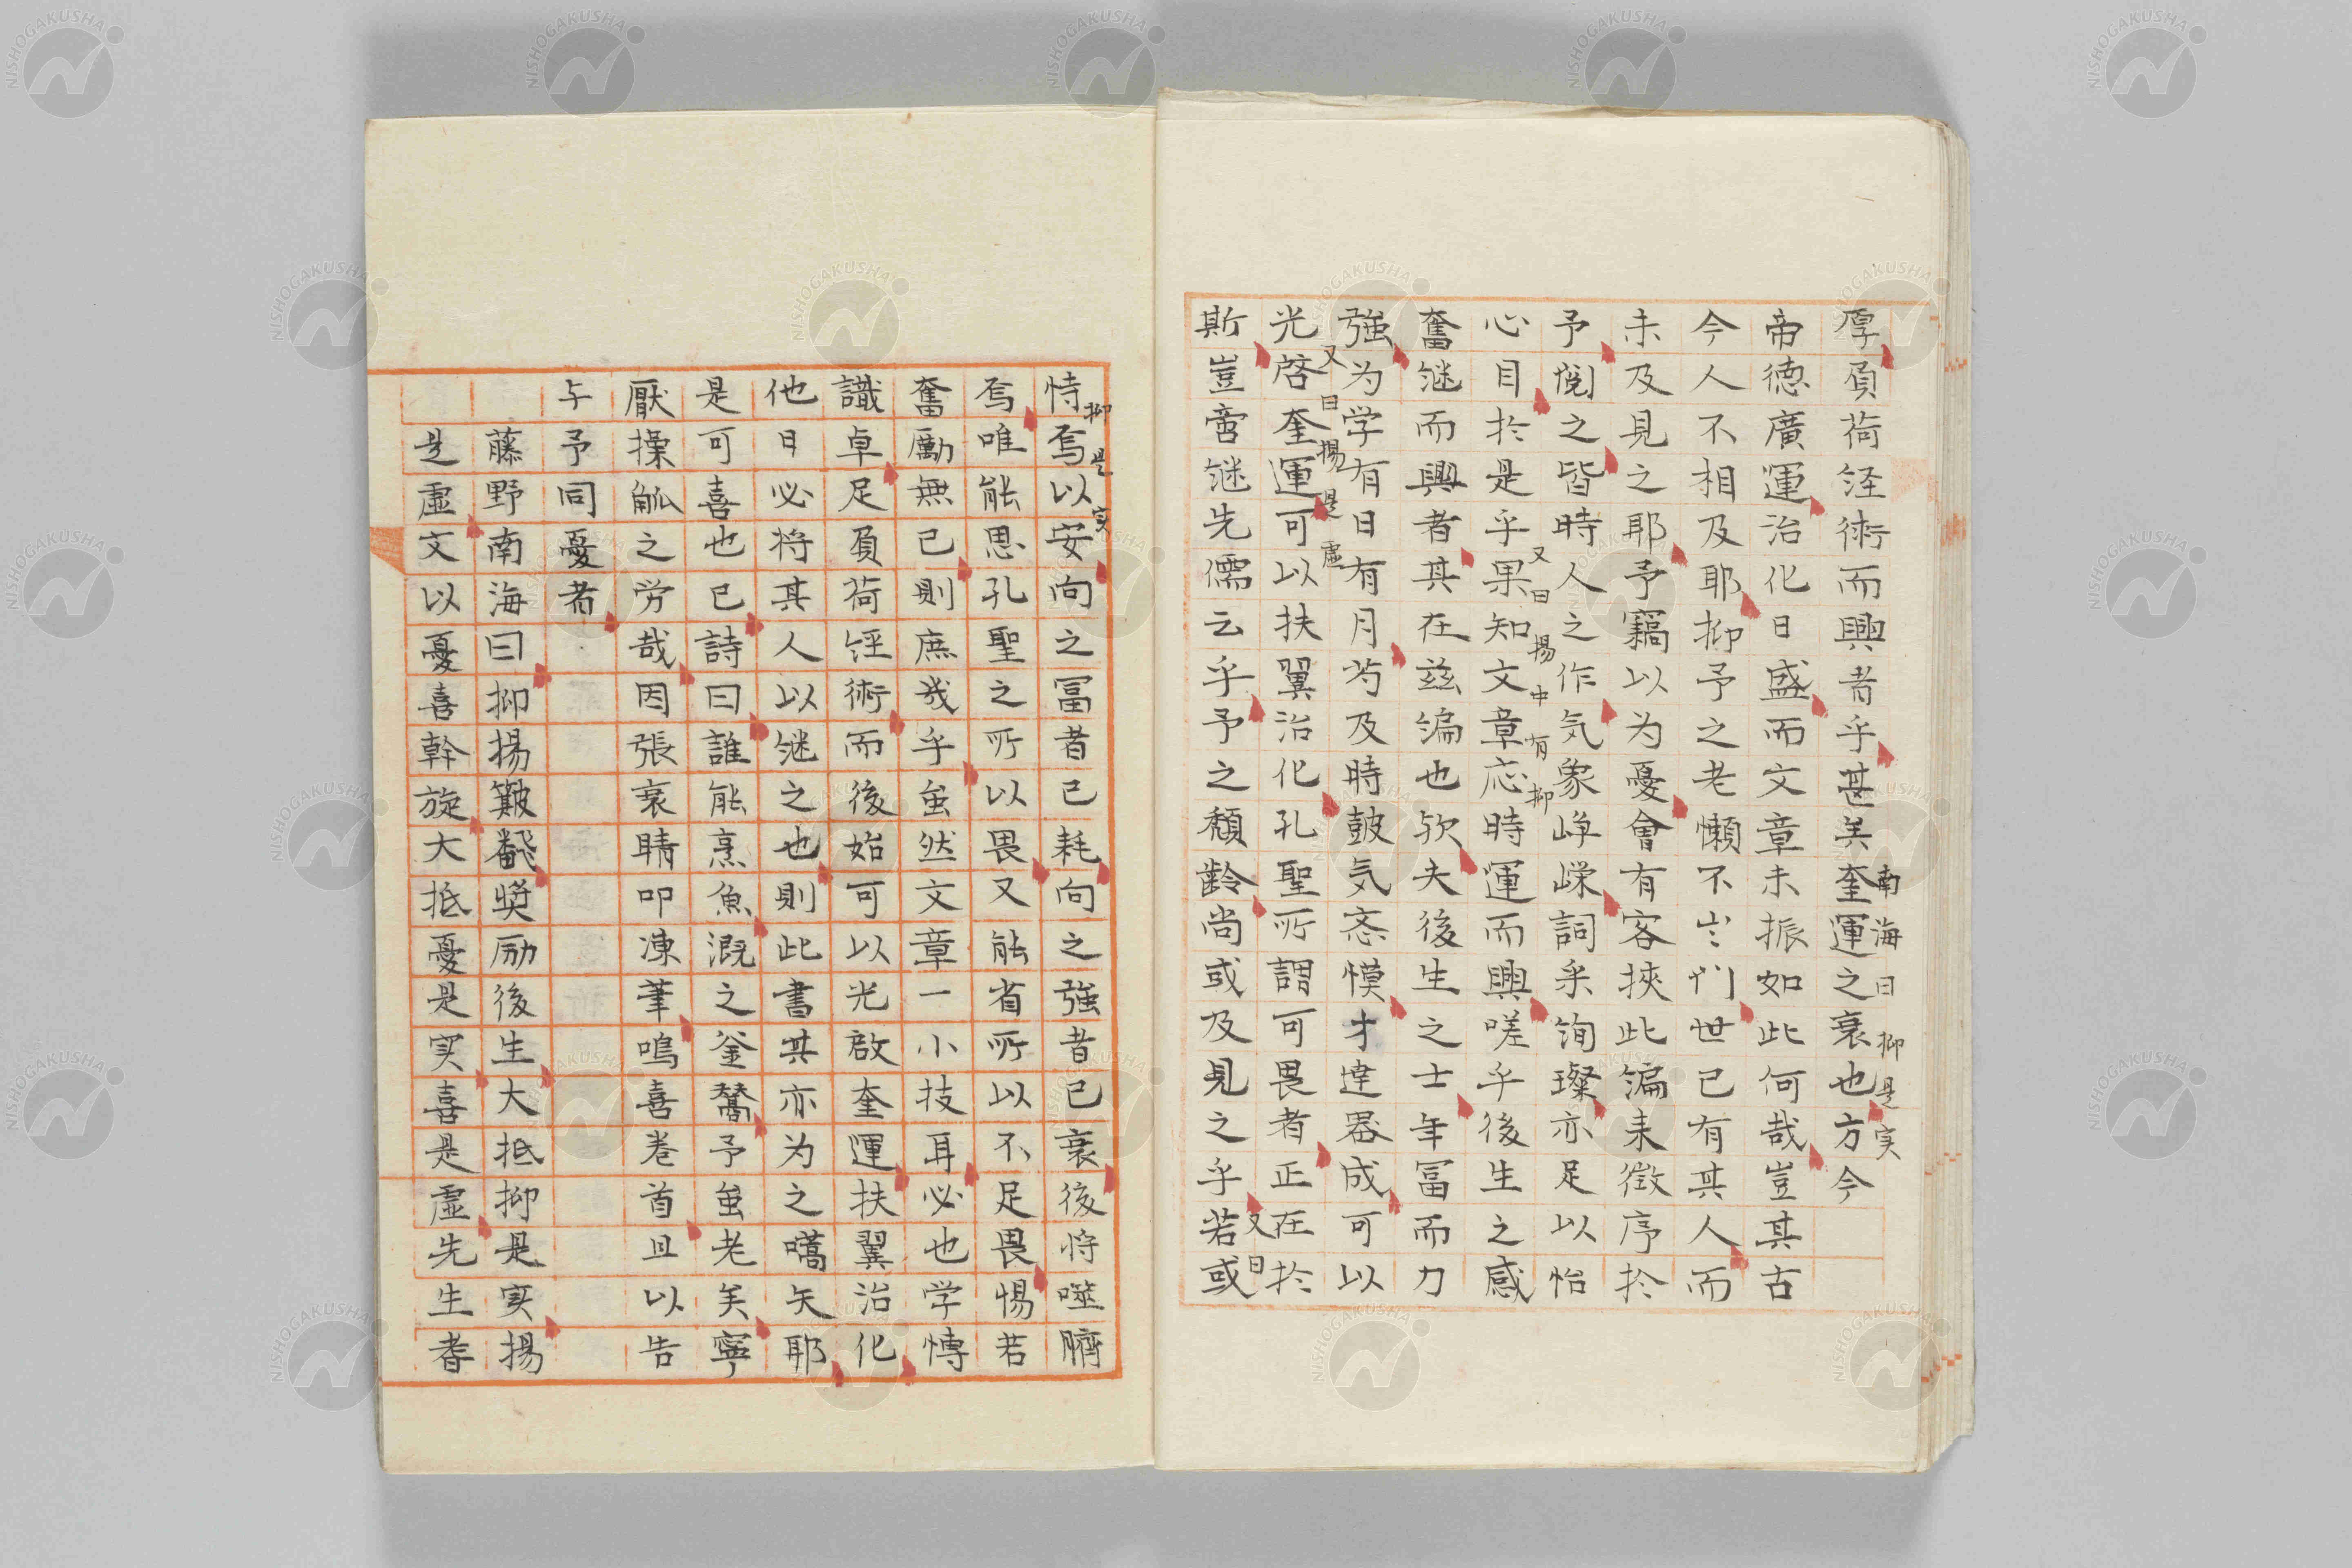 厚負荷経術而興者乎甚矣奎運之衰也方今
南海曰抑是実
帝徳廣運治化日盛而文章未振如此何哉豈其古
今人不相及耶抑予之老懶不出門世已有其人而
未及見之耶予竊以为憂會有客挟此編来徴序於
予閲之皆時人之作気象崢嶸詞采洵璨亦足以怡
又曰揚中有抑
心目於是乎果知文章応時運而興嗟乎後生之感
奮継而興者其在茲編也欤夫後生之士年冨而力
強为学有日有月芍及時鼓気忞慔才達器成可以
又曰揚是虚
光啓奎運可以扶翼治化孔聖所謂可畏者正在於
斯豈啻継先儒云乎予之頽齢尚或及見之乎若或
又曰
抑是実
恃焉以安向之冨者已耗向之強者已衰後将噬臍
焉唯能思孔聖之所以畏又能省所以不足畏惕若
奮勵無已則庶我乎虽然文章一小技耳必也学慱
識卓足負荷経術而後始可以光啟奎運扶翼治化
他日必将其人以継之也則此書其亦为之嚆矢耶
是可喜也已詩曰誰能烹魚溉之釜鬵予虽老矣寧
厭操觚之労哉因張衰睛叩凍筆嗚喜巻首且以告
与予同憂者
藤野南海曰抑揚簸飜奨励後生大抵抑是実揚
是虚文以憂喜幹旋大抵憂是実喜是虚先生耆
NISHOGAKUSHA